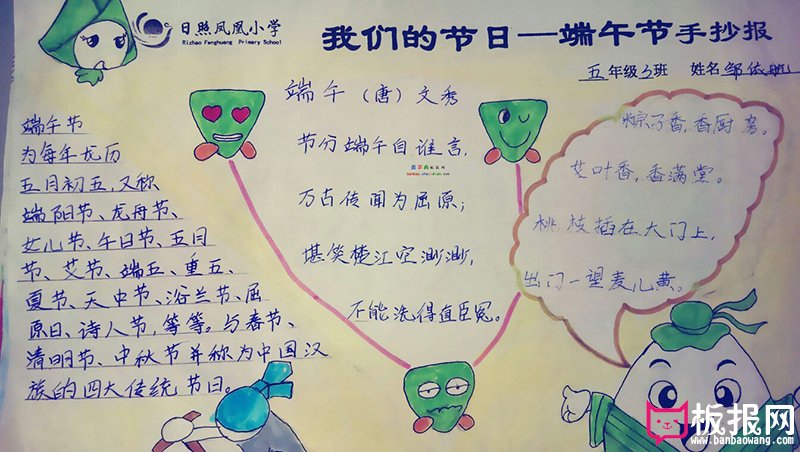 日照凤凰小学
Rizhao Fenghuang Primary School
我们的节日—端午节手抄报
五年级3班 姓名邹依
端午节
为每年农历
五月初五,又称
端阳节、龙舟节、
女儿节、午日节、五月
节、艾节、端五、重五、
夏节、天中节、浴兰节、屈
原日、诗人节,等等。与春节、
清明节、中秋节并称为中国汉
族的四大传统节日。
端午(唐)文秀
节分端午自谁言,
万古传闻为屈原;
堪笑楚江空渺渺,
不能洗得直臣冤。
粽子香,香厨房。
艾叶香,香满堂。
桃枝插在大门上,
出门一望麦儿黄。
板报网
www.banbaowang.com